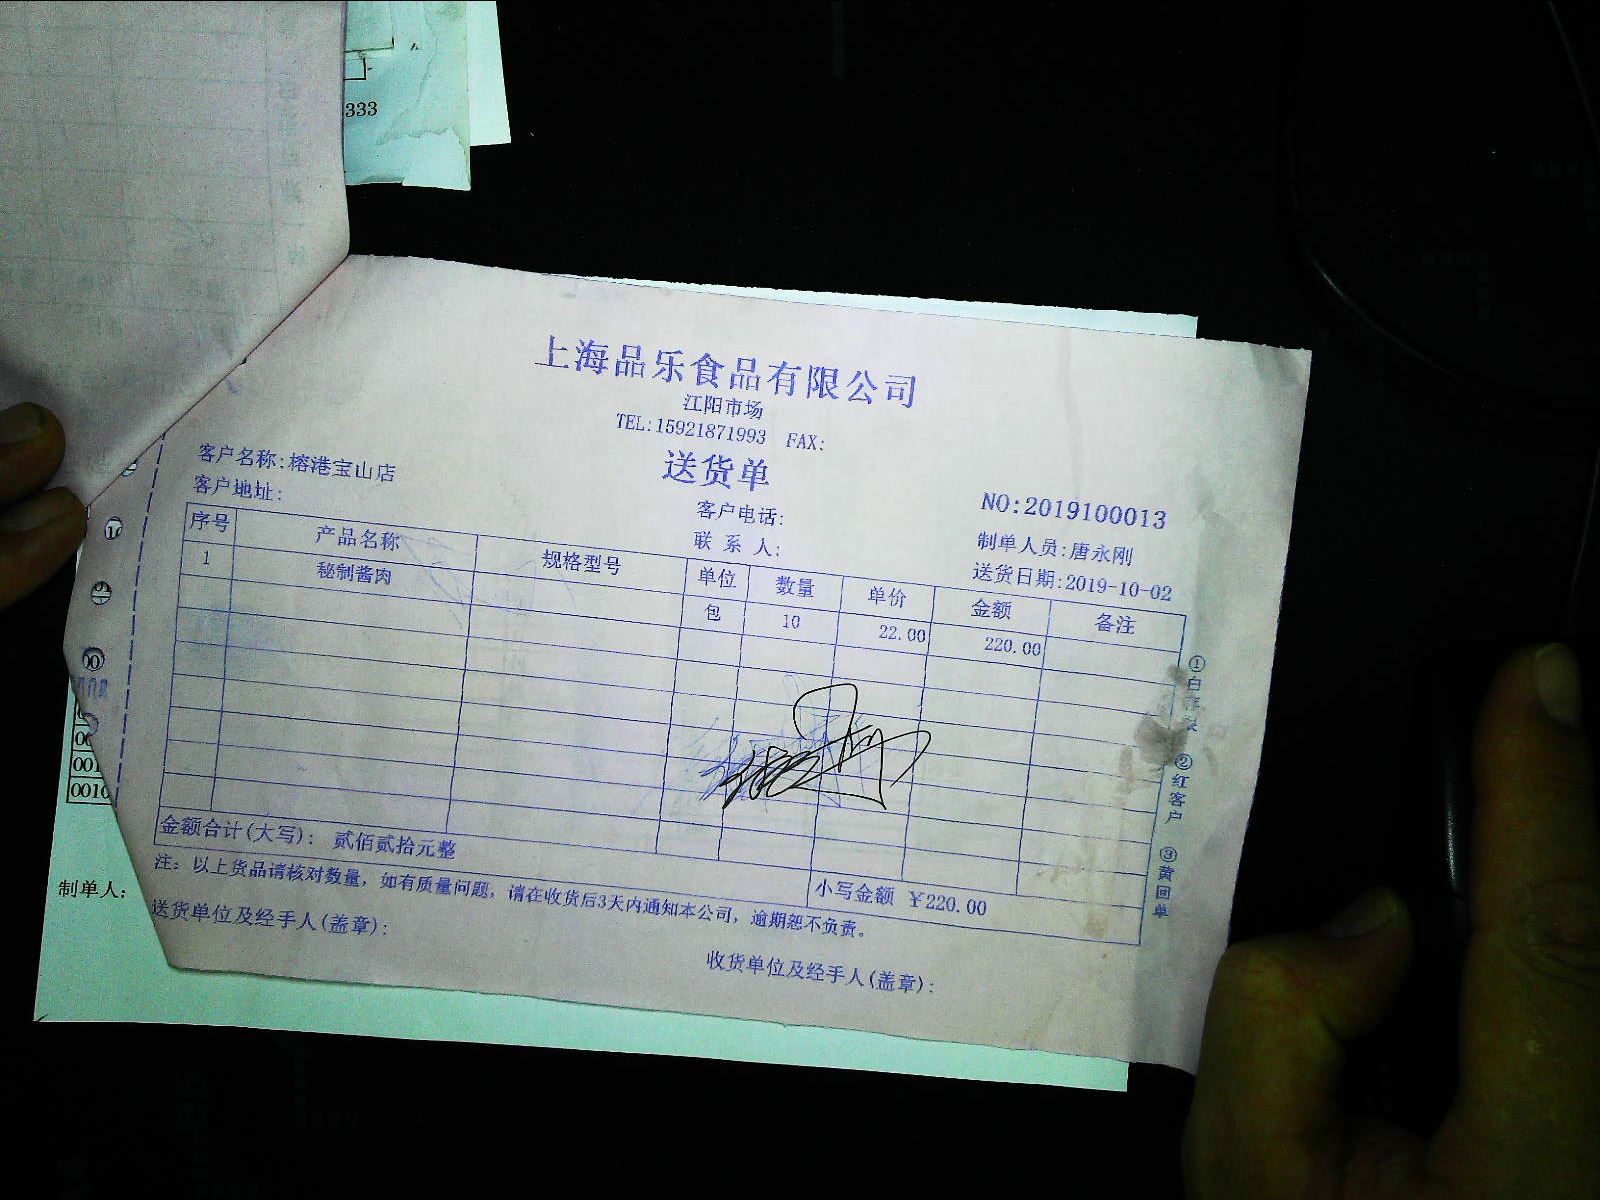 333
上海品乐食品有限公司
江阳市场
TEL:15921871993 FAX:
送货单
客户名称:榕港宝山店
客户地址:
客户电话:
联 系 人:
NO:2019100013
制单人员:唐永刚
送货日期:2019-10-02
序号 产品名称 规格型号 单位 数量 单价 金额 备注
1 秘制酱肉 包 10 22.00 220.00
金额合计(大写): 贰佰贰拾元整
小写金额 ¥220.00
注: 以上货品请核对数量, 如有质量问题, 请在收货后3天内通知本公司, 逾期恕不负责。
送货单位及经手人(盖章):
收货单位及经手人(盖章):
②红客户
③黄回单
001
0010
制单人: